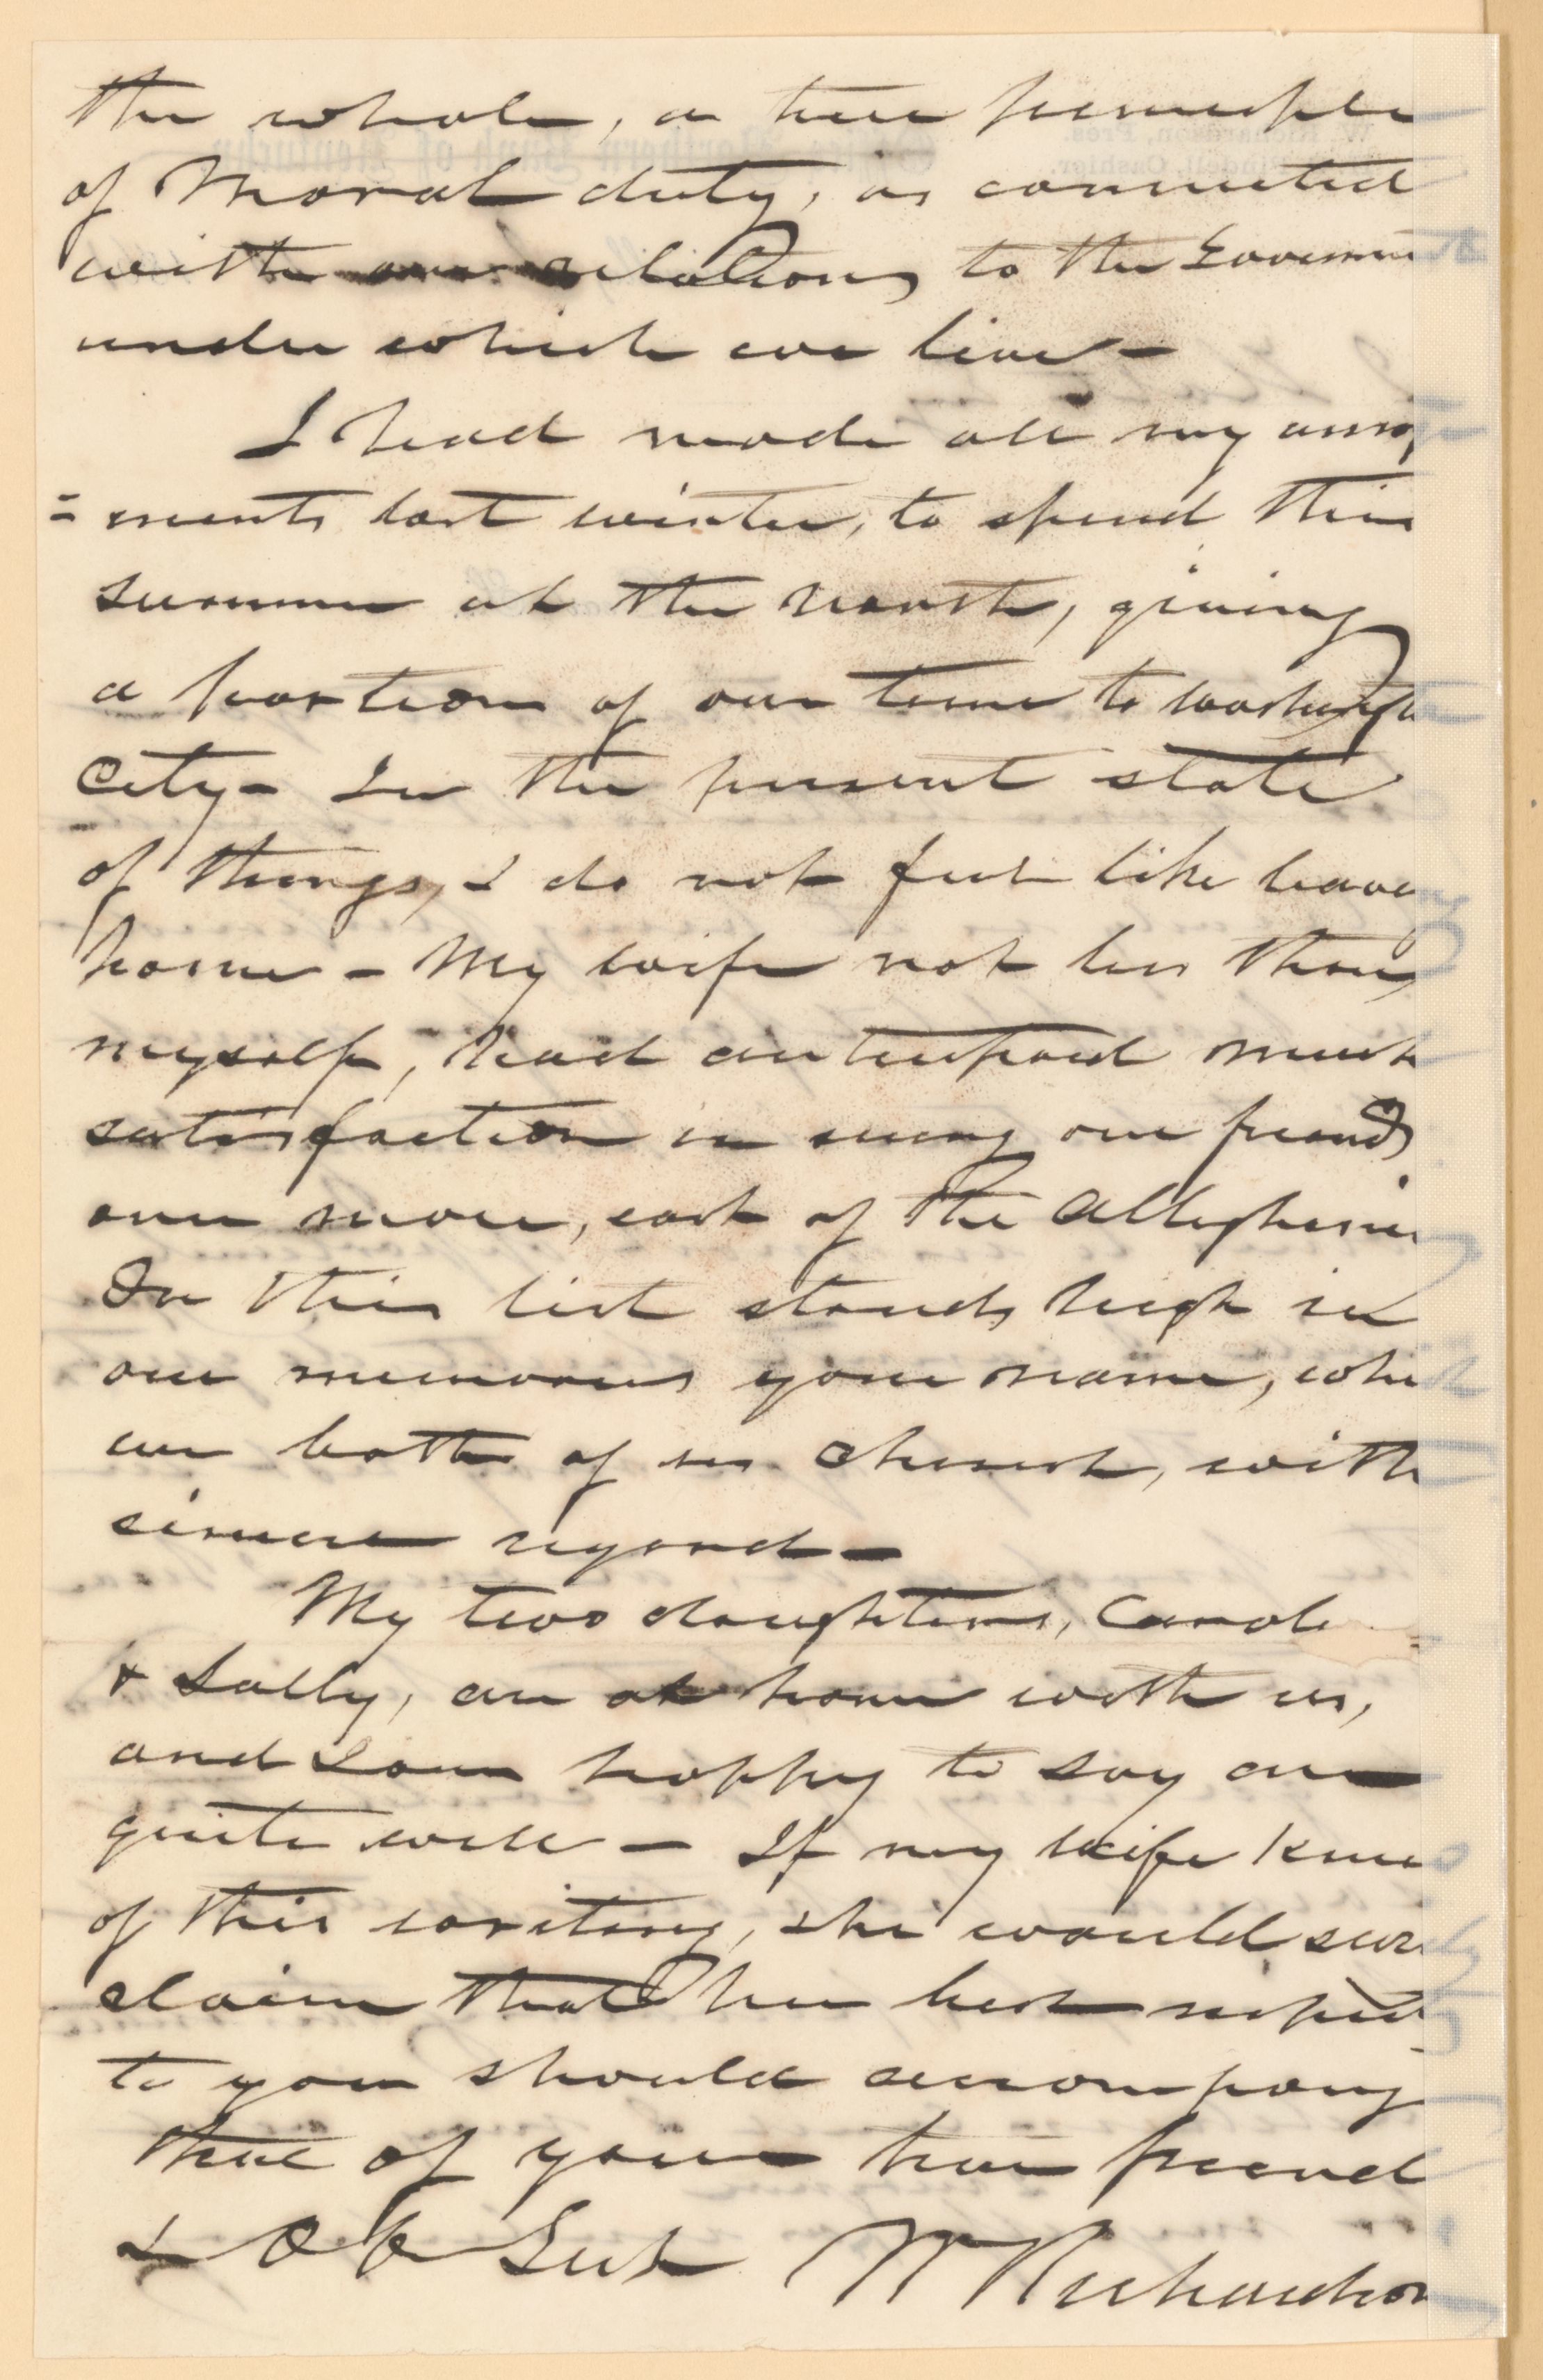 the whole, a true principle
of Moral duty, as connected
with our relations to the Government
under which we live-
I had made all my arrange
=ments last winter, to spend this
summer at the north, giving
a portion of our time to Washington
City- In the present state
of things, I do not feel like leaving
home - My wife not less than
myself, had anticipated much
satisfaction in seeing our friends
once more, east of the Alleghenies
In this list stands high in
our memories your name, which
we both of us cherish, with
sincere regard-
My two daughters, Carole
& Sally, are at home with us,
and I am happy to say are
quite well - If my wife knew
of this writing, she would surely
claim that her best respects
to you should accompany
that of your true friend
& Ob Svt W Richardson